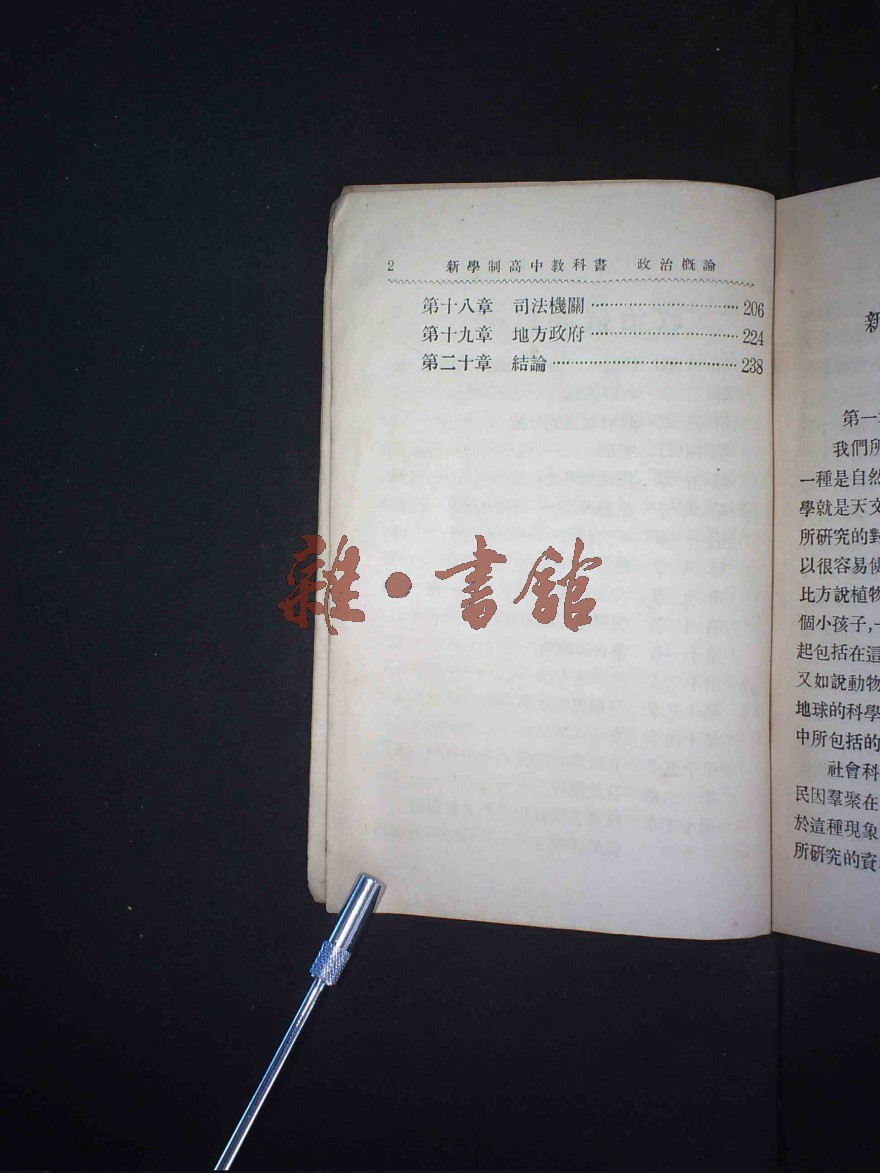 2 新學制高中教科書 政治槪論
第十八章 司法機關 206
第十九章 地方政府 224
第二十章 結論 238
雜·書館
新
第一
我們所
一種是自然
學就是天文
所研究的對
以很容易使
比方說植物
個小孩子,一
起包括在這
又如說動物
地球的科學
中所包括的
社會科
民因羣聚在
於這種現象
所研究的資